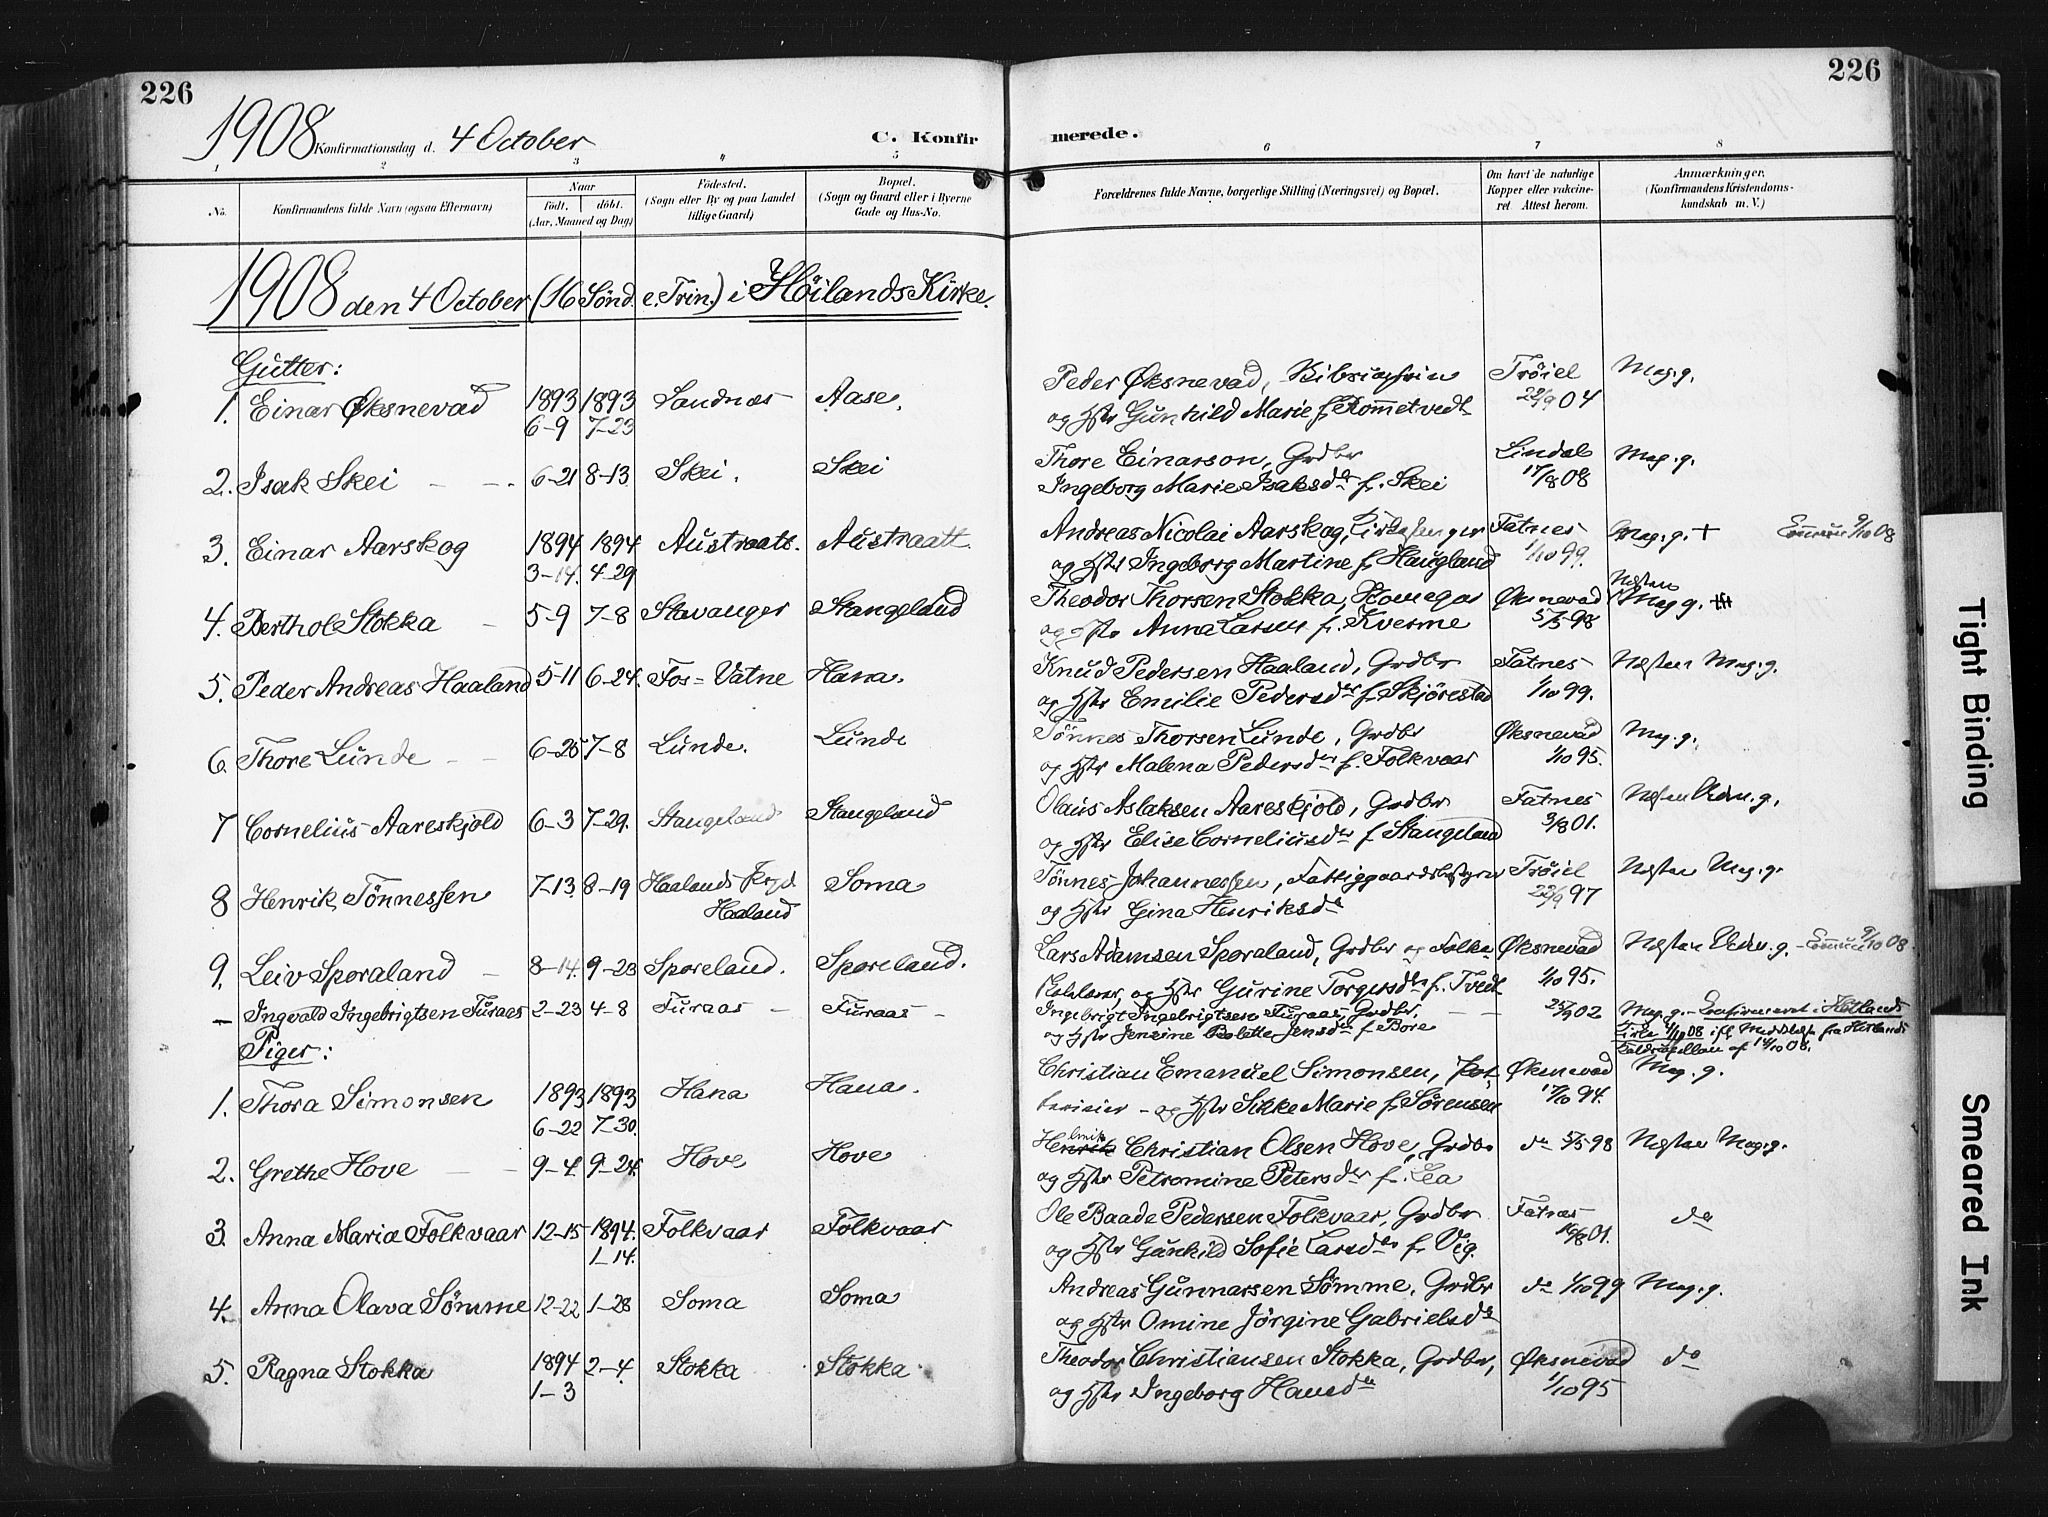 226
226
1908 Konfirmationsdag d. 4 October
C. Konfirmerede.
1 2 3 4 5 6 7 8
No.
Konfirmandens fulde Navn (ogsaa Efternavn)
Naar
Födt. döbt.
(Aar, Maaned og Dag)
Födested.
(Sogn eller By og paa Landet
tillige Gaard)
Bopæl.
(Sogn og Gaard eller i Byerne
Gade og Hus-No.
Forældrenes fulde Navne, borgerlige Stilling (Næringsvei) og Bopæl.
Om havt de naturlige
Kopper eller vakcine-
ret Attest herom.
Anmærkninger,
(Konfirmandens Kristendoms-
kundskab m. V.)
1908 den 4 October (16 Sönd. e. Trin.) i Höilands Kirke.
Gutter:
1. Einar Øksnevad 1893 6-9 1893 7-23 Sandnæs Aase. Peder Øksnevad, Tröiel 22/9 04 Meg. g.
og Hstr Gunhild Marie f. Rommetvedt
2. Isak Skei 6-21 8-13 Skei. Skei Thore Einarson, Grdbr Lindal 17/8 08 Meg. g.
Ingeborg Marie Isaksdtr f. Skei
3. Einar Aarskog 1894 3-14. 1894 4-29 Austraatt. Austraatt. Andreas Nicolai Aarskog, Kirkesanger Fatnes 1/10 99. Meg. g. + 9/10 08
og Hstr Ingeborg Martine f. Haugland
4. Berthol Stokka 5-9 7-8 Stavanger Stangeland Theodor Thorsen Stokka, Øksnevad 5/5 98 Næsten Meg g.
og Hstr Anna Larsen f. Kverme
5. Peder Andreas Haaland 5-11 6-24. Fos-Vatne Hana. Knud Pedersen Haaland, Grdbr Fatnes 1/10 99. Næsten Meg. g.
og Hstr Emilie Pedersdtr f. Skjörestad
6. Thore Lunde 6-25 7-8 Lunde. Lunde Tönnes Thorsen Lunde, Grdbr Øksnevad 1/10 95. Meg. g.
og Hstr Malena Pedersdtr f. Folkvaar
7 Cornelius Aareskjold 6-3 7-29. Stangeland Stangeland Olaus Aslaksen Aareskjold, Grdbr Fatnes 3/8 01. Næsten Udm. g.
og Hstr Elise Corneliusdtr f. Stangeland
8 Henrik Tönnessen 7-13. 8-19 Haalands Haaland Soma Tönnes Johannessen, Fattiggaardsbestyrer Tröiel 22/9 97 Næsten Meg. g.
og Hstr Gina Henriksdtr
9. Leiv Sporaland 8-14. 9-23 Sporeland. Sporeland. Lars Adamsen Sporaland, Grdbr og Folke- Øksnevad 1/10 95. Næsten Udm. g. 9/10 08
og Hstr Gurine Torgersdtr f. Tvedt
– Ingvald Ingebrigtsen Furaas 2-23 4-8 Furaas Furaas Ingebrigt Ingebrigtsen Furaas, Grdbr. 25/9 02 Meg. g. Confirmeret i Hetlands
og Hstr Jensine Jensdtr f. Bore Kirke 4/10 08 ifl. Meddelelse fra Hetlands
af 14/10 08.
Piger:
1. Thora Simonsen 1893 6-22 1893 7-30. Hana Hana. Christian Emanuel Simonsen, Øksnevad 17/10 94. Meg. g.
og Hstr Sikke Marie f. Sörensen
2. Grethe Hove 9-4 9-24. Hove Hove Christian Olsen Hove, Grdbr do 5/5 98 Næsten Meg. g.
og Hstr Petromine Petersdtr f. Lea
3. Anna Maria Folkvaar 12-15 1894. 1-14. Folkvaar Folkvaar Ole Baade Pedersen Folkvaar, Grdbr Fatnes 19/8 01. do
og Hstr Gunhild Sofie Larsdtr f. Vig.
4. Anna Olava Sömme 12-22 1-28 Soma Soma Andreas Gunnarsen Sömme, Grdbr do 1/10 99 Meg. g.
og Hstr Omine Jörgine Gabrielsdtr
5. Ragna Stokka 1894 1-3 2-4. Stokka Stokka Theodor Christiansen Stokka, Grdbr, Øksnevad 1/10 95 do
og Hstr Ingeborg Hansdtr
Tight Binding
Smeared Ink